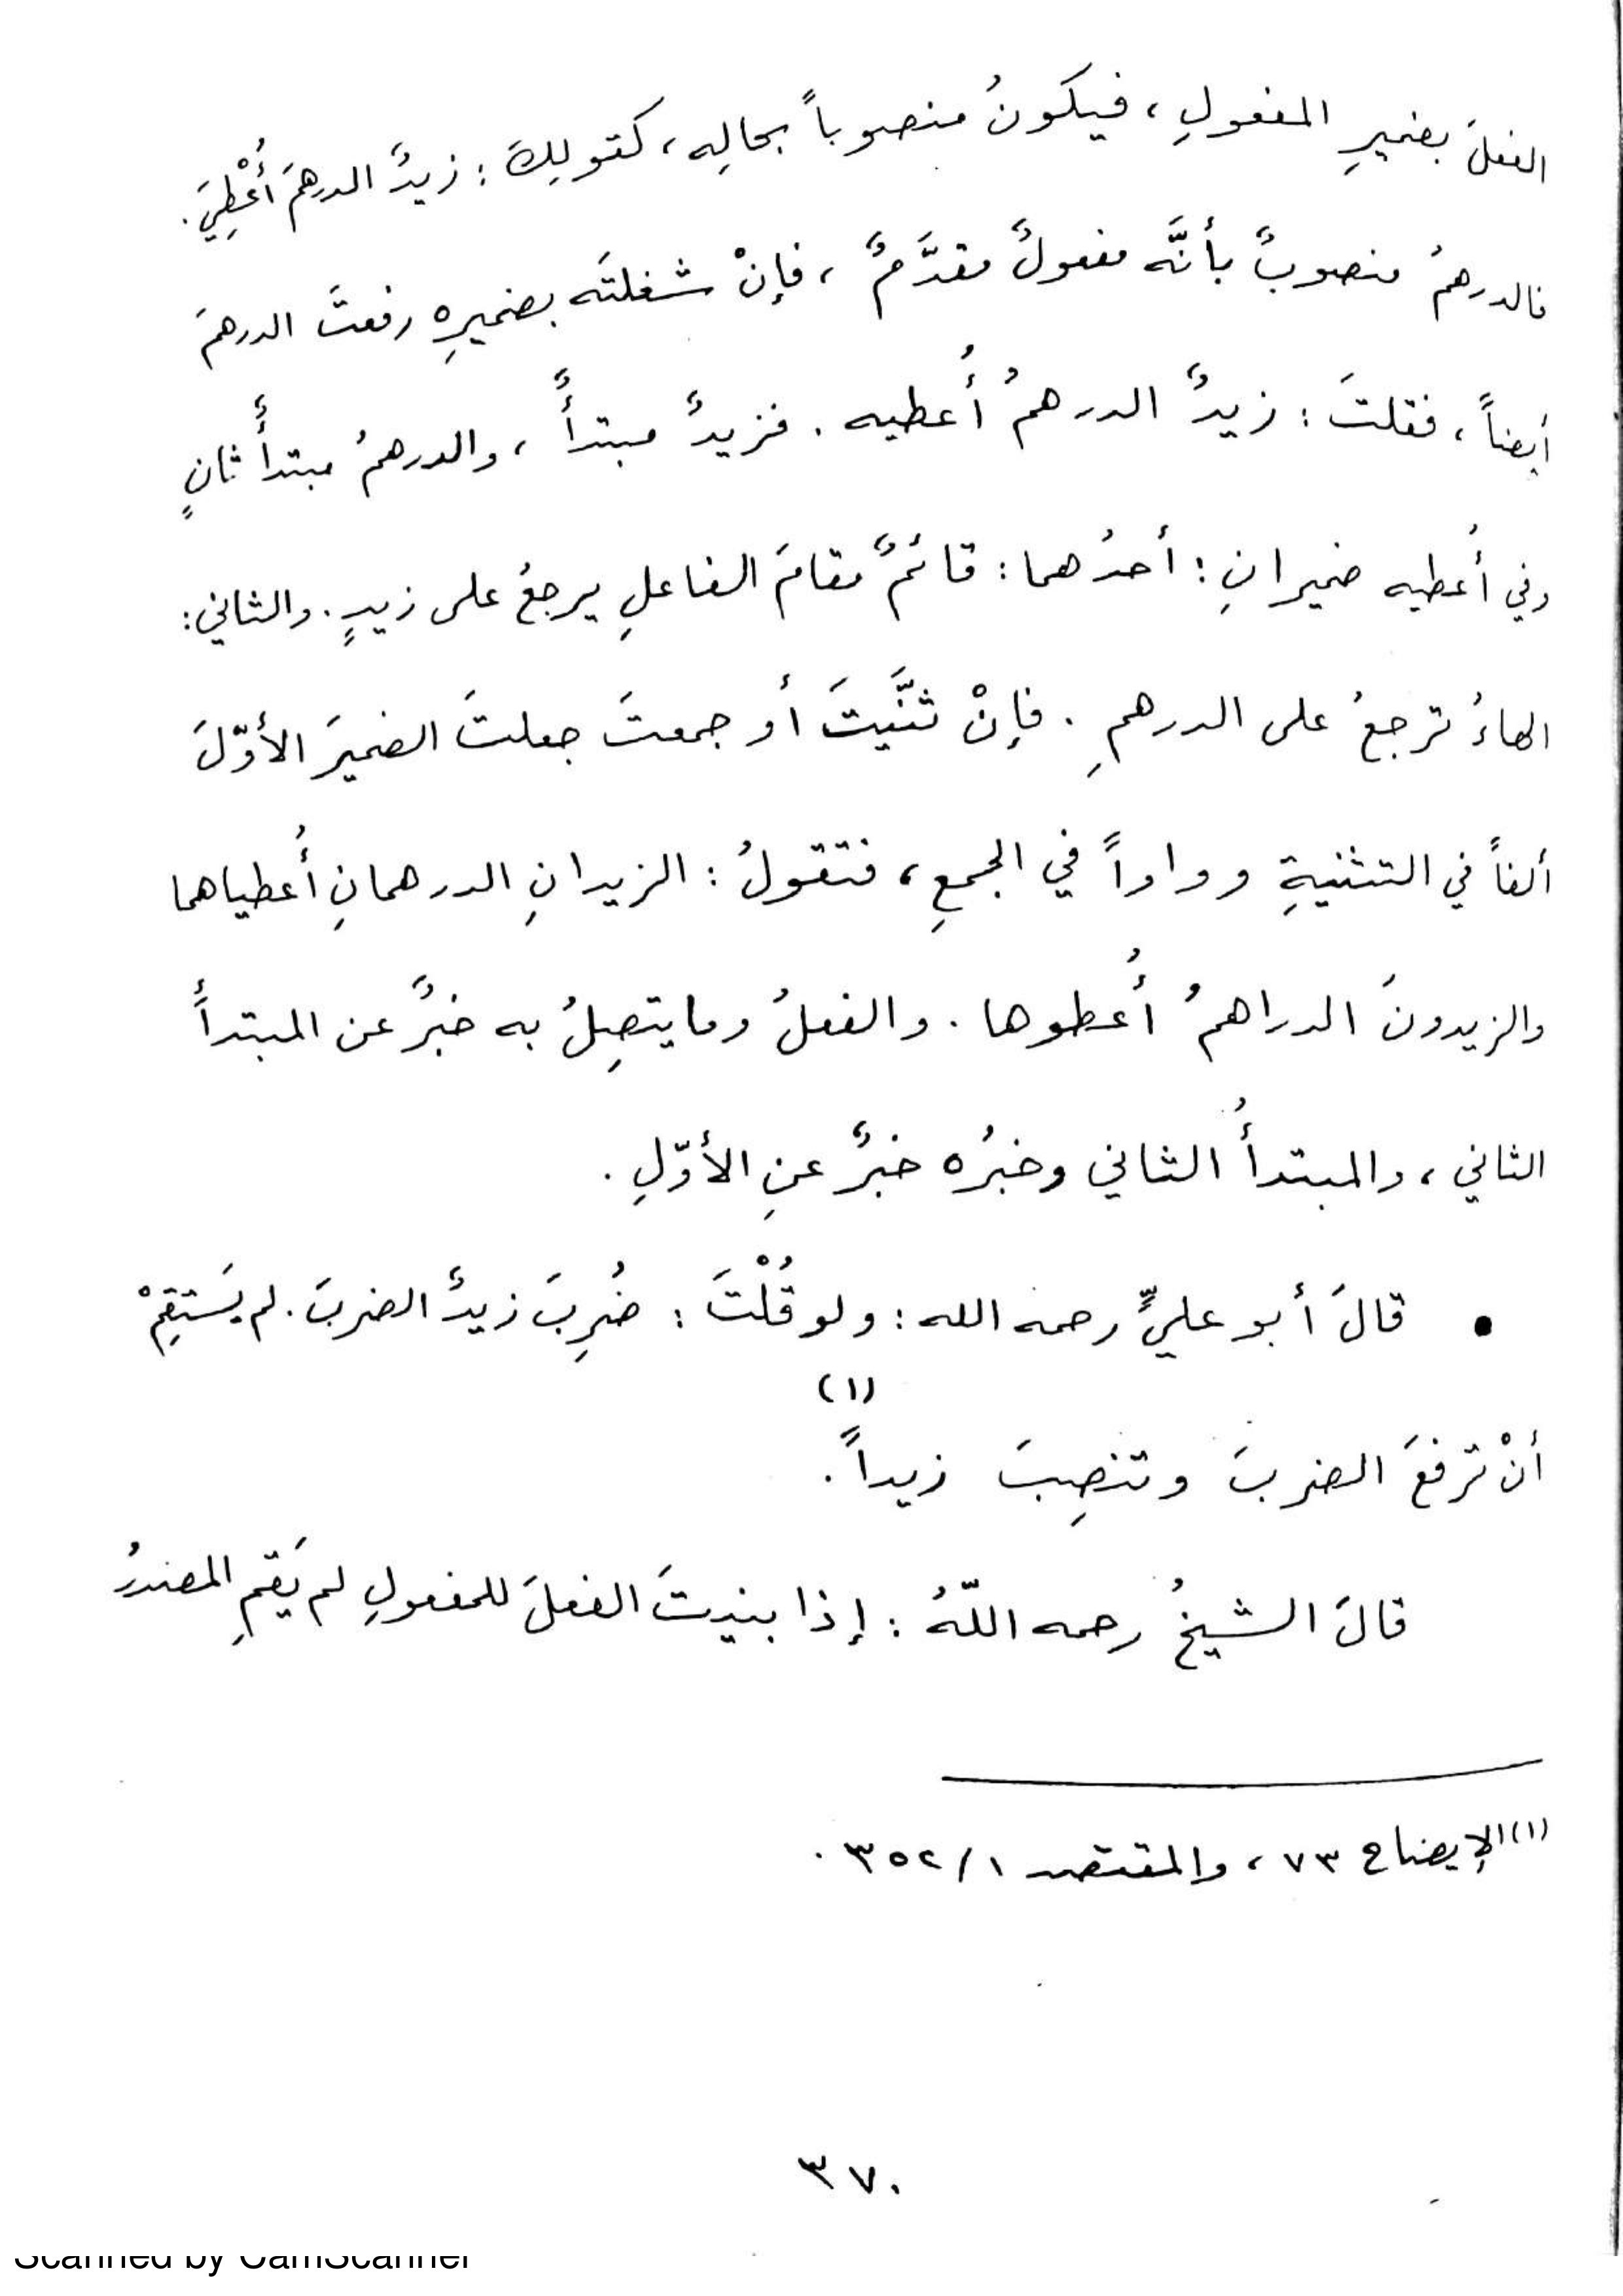 الفعلَ بضميرِ المفعولِ ، فيكونُ منصوباً بحالِه ، كقولِكَ : زيدٌ الدرهمَ أُعْطِيَ .
فالدرهمُ منصوبٌ بأنَّه مفعولٌ مقدَّمٌ ، فإنْ شغلتَه بضميرِه رفعتَ الدرهمَ
أيضاً ، فقلتَ : زيدٌ الدرهمُ أُعطيه . فزيدٌ مبتدأٌ ، والدرهمُ مبتدأٌ ثانٍ
وفي أُعطيه ضميرانِ : أحدُهما : قائمٌ مقامَ الفاعلِ يرجعُ على زيدٍ . والثاني :
الهاءُ ترجعُ على الدرهمِ . فإنْ ثنَّيتَ أو جمعتَ جعلتَ الضميرَ الأوّلَ
ألفاً في التثنيةِ وواواً في الجمعِ ، فتقولُ : الزيدانِ الدرهمانِ أُعطياهما
والزيدونَ الدراهمُ أُعطوها . والفعلُ وما يتصِلُ به خبرٌ عن المبتدأ
الثاني ، والمبتدأُ الثاني وخبرُه خبرٌ عنِ الأوّلِ .
• قالَ أبو عليٍّ رحمه الله : ولو قُلْتَ : ضُرِبَ زيدٌ الضربَ . لم يَستقِمْ
أنْ ترفعَ الضربَ وتنصِبَ زيداً (١) .
قالَ الشيخُ رحمه اللّهُ : إذا بنيتَ الفعلَ للمفعولِ لم يَقمِ المصدرُ
(١) الإيضاح ٧٣ ، والمقتصد ١/ ٣٥٢ .
٣٧٠
Scanned by CamScanner